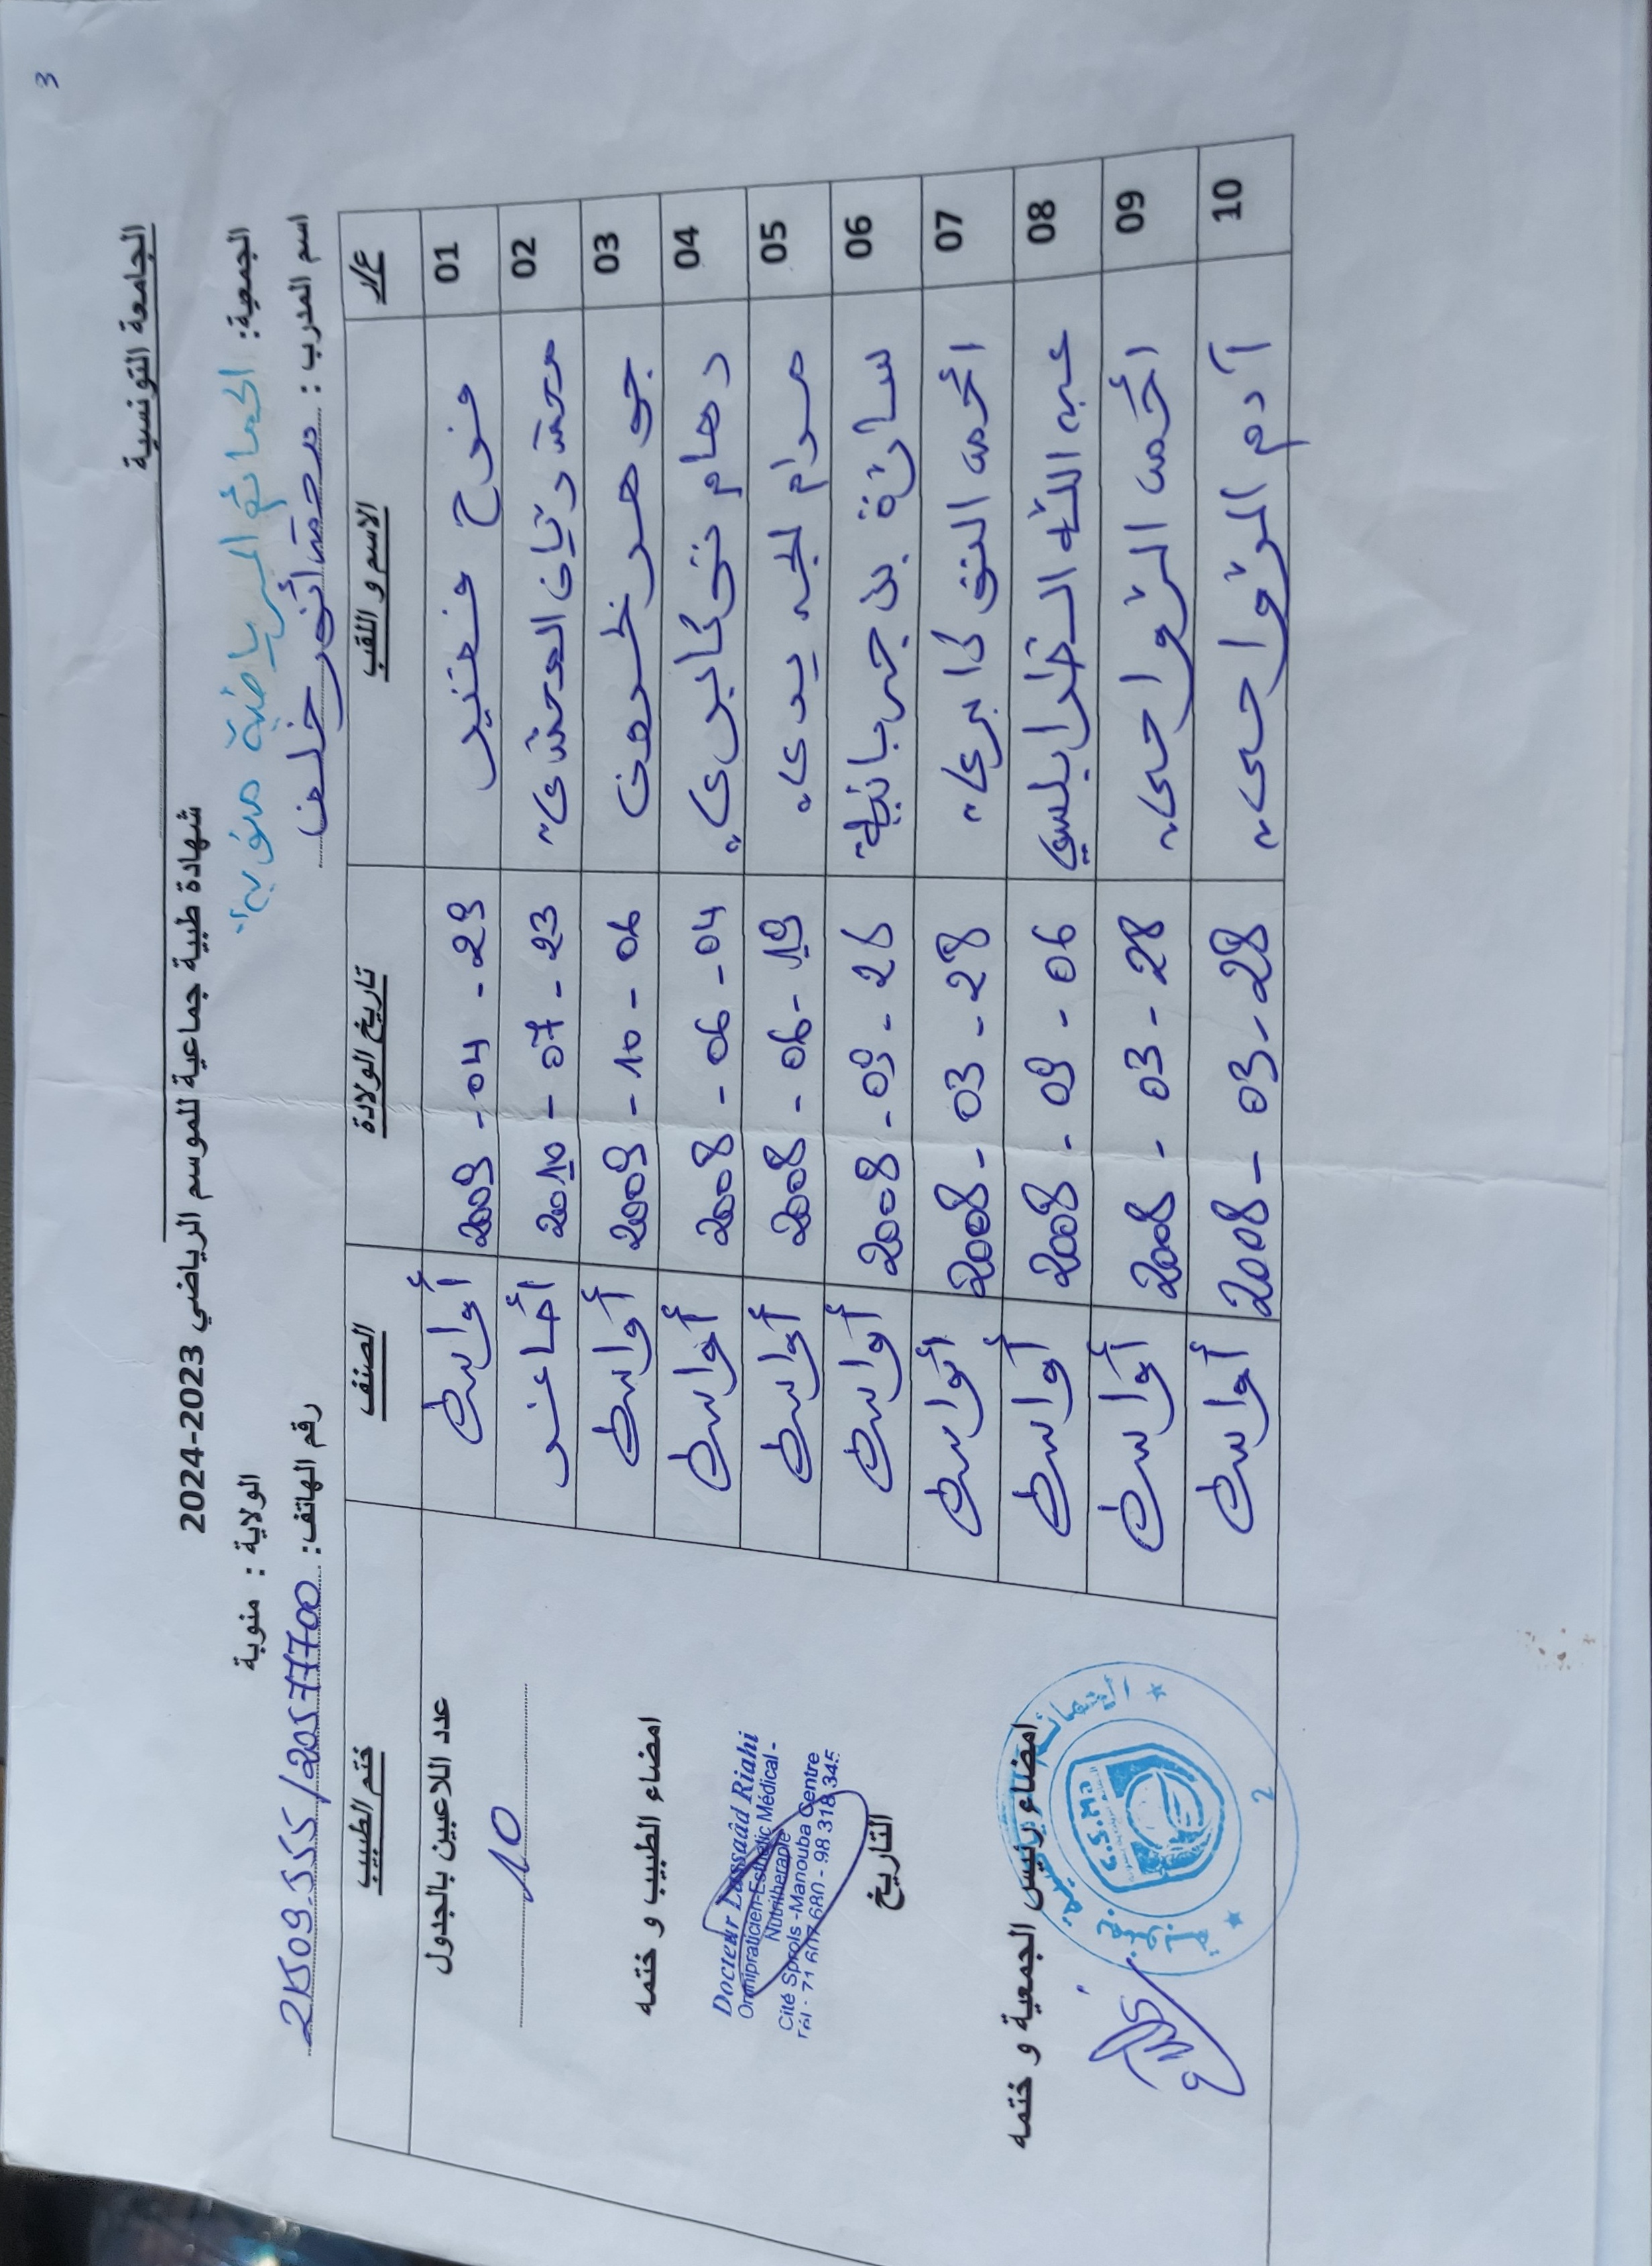 3
الجامعة التونسية
شهادة طبية جماعية للموسم الرياضي 2023-2024
الجمعية: الحمائم الرياضية منوبة الولاية : منوبة
اسم المدرب : محمد أنور خلف رقم الهاتف:
ع/ر الاسم و اللقب تاريخ الولادة الصنف ختم الطبيب
01 فرح 2009 - 04 - 29 أواسط
02 محمد ريان 2010 - 07 - 23 أصاغر
03 جوهر 2009 - 10 - 06 أواسط
04 رهام 2008 - 06 - 04 أواسط
05 مرام 2008 - 06 - 19 أواسط
06 سارة بلا جربانية 2008 - 09 - 26 أواسط
07 أحمد 2008 - 03 - 28 أواسط
08 عبد الله الطرابلسي 2008 - 09 - 06 أواسط
09 أحمد الرواحي 2008 - 03 - 28 أواسط
10 آدم الرواحي 2008 - 03 - 28 أواسط
عدد اللاعبين بالجدول
10
امضاء الطبيب و ختمه
Docteur Lassaâd Riahi
Omnipraticien-Esthétic Médical -
Nutritherapie
Cité Sprols -Manouba Centre
Tél - 71 607 680 - 98 318 345
التاريخ
امضاء رئيس الجمعية و ختمه
C.S.M